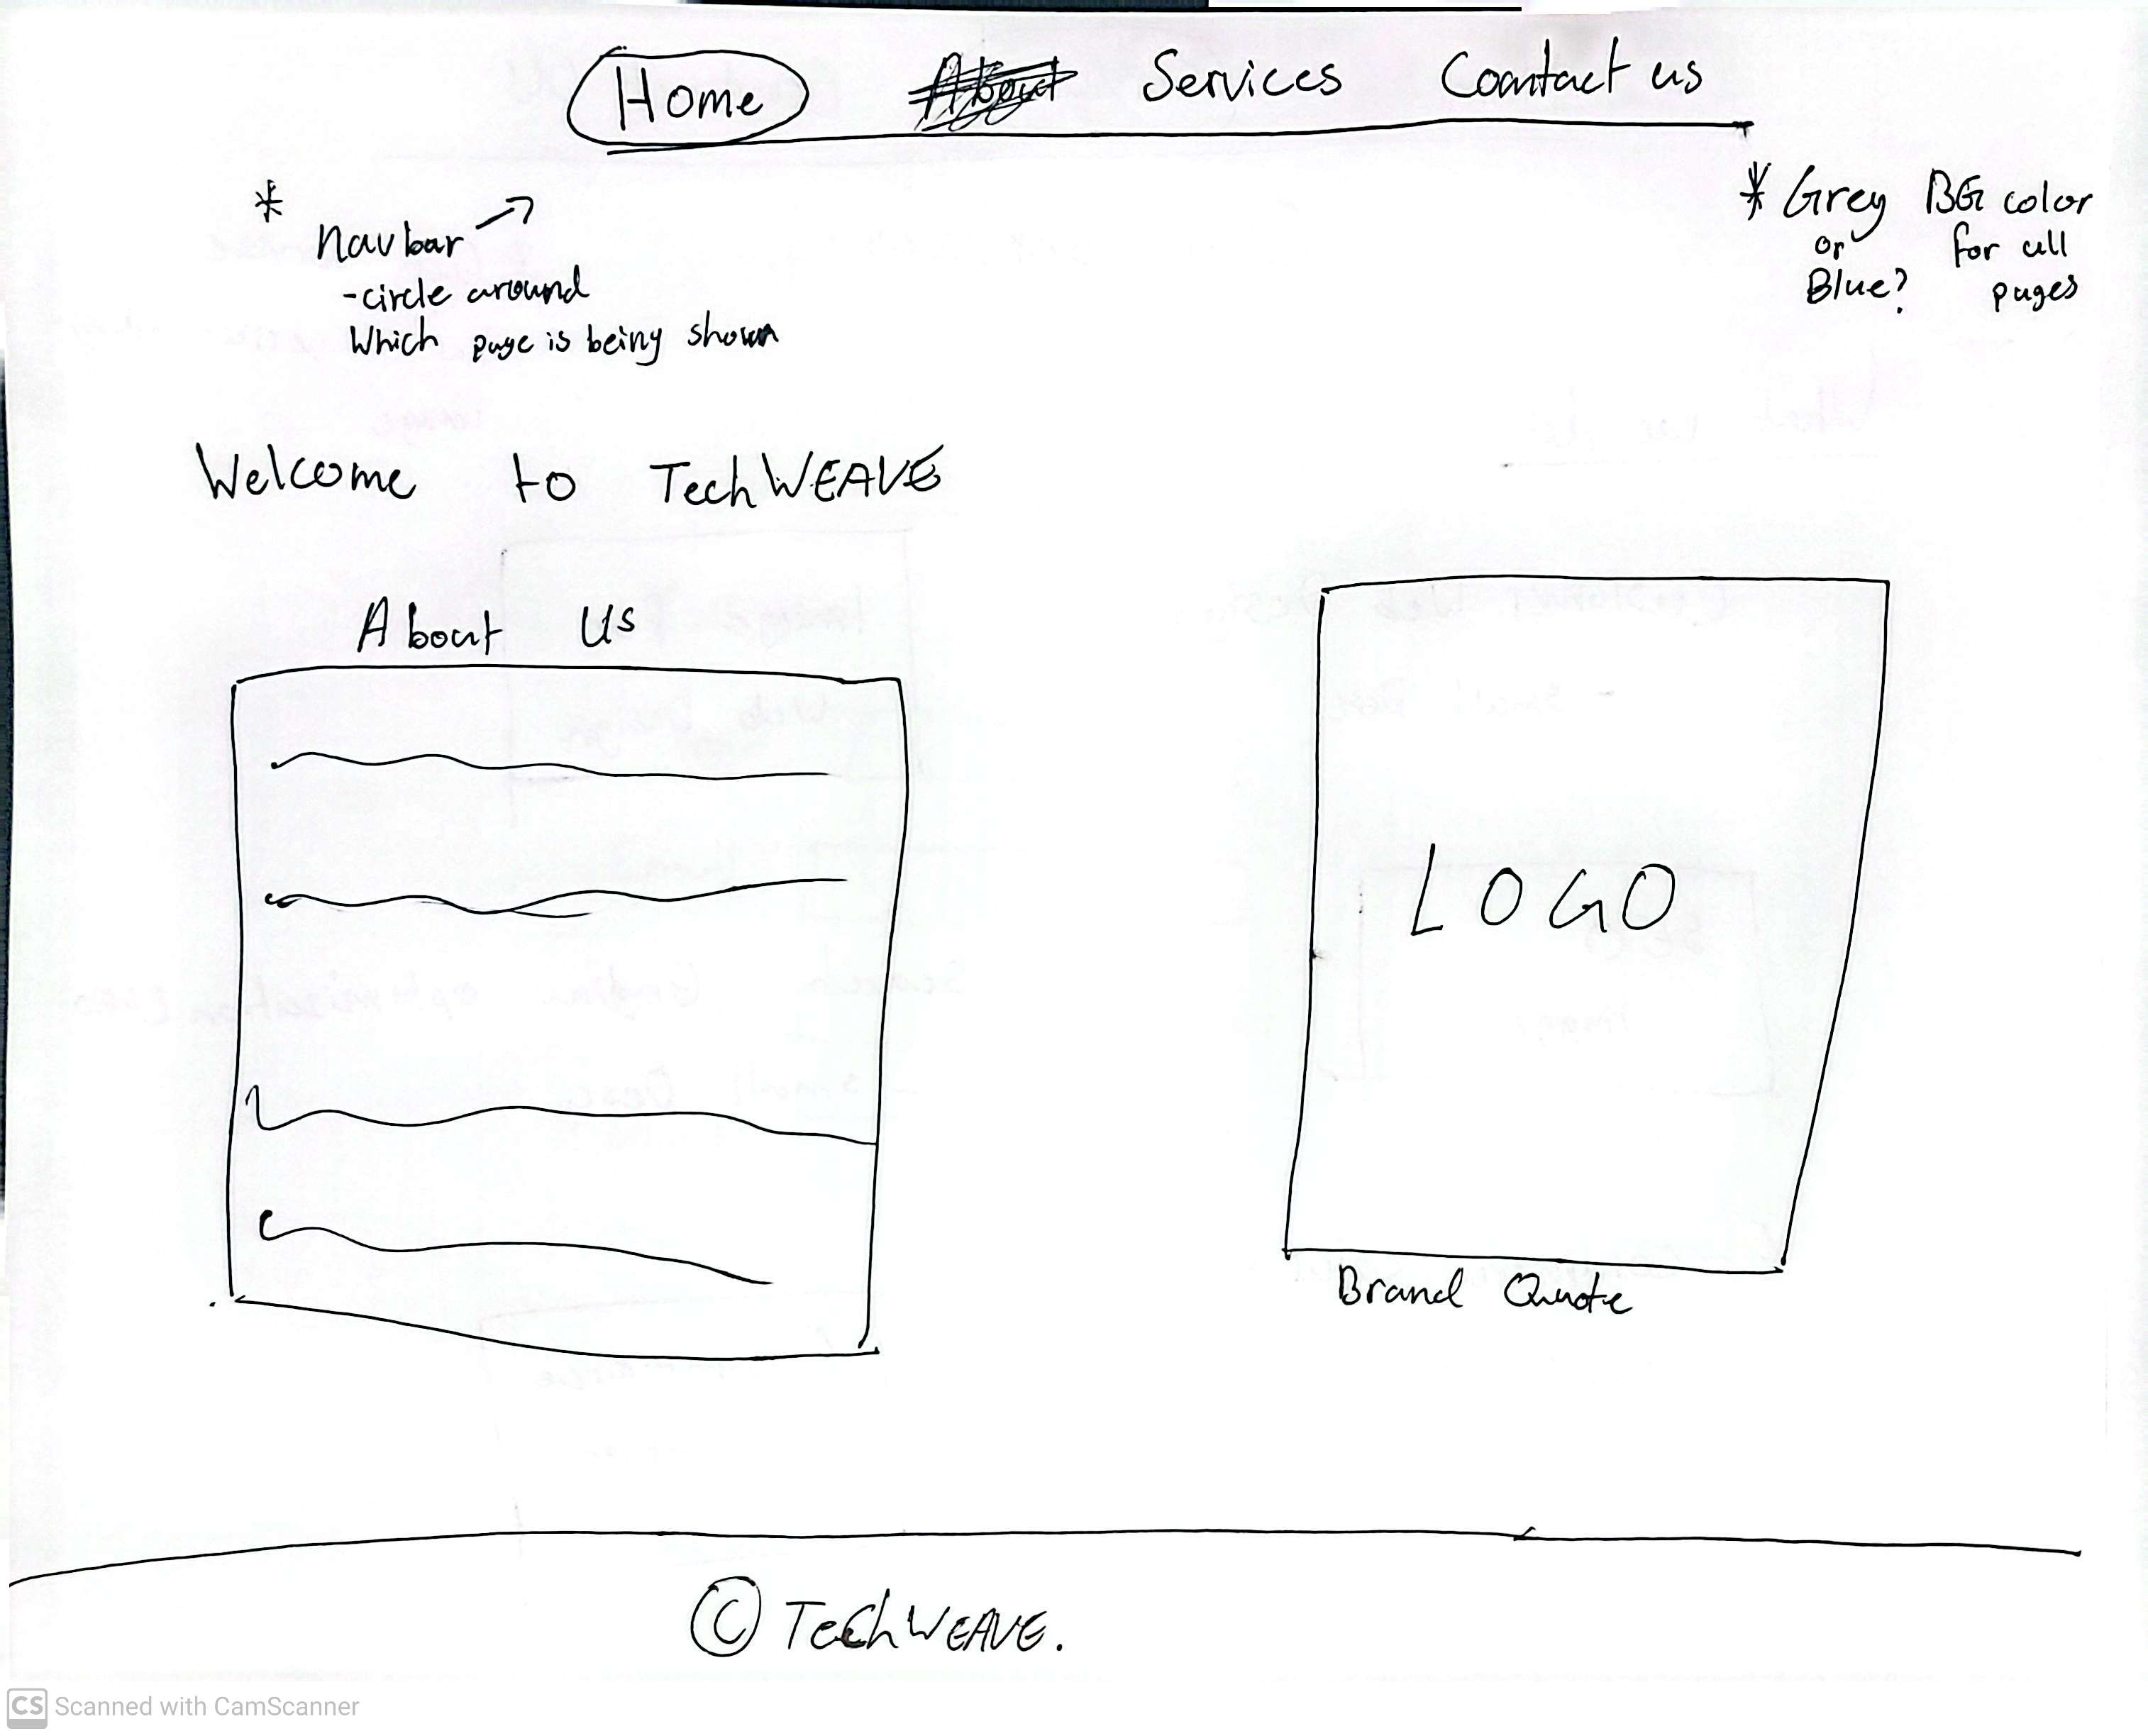 Home Services Coontact us
* Navbar
-circle around
Which page is being shown
* Grey BG color
or for all
Blue? pages
Welcome to TechWEAVE
About Us
LOGO
Brand Quote
© TechWEAVE.
CS Scanned with CamScanner